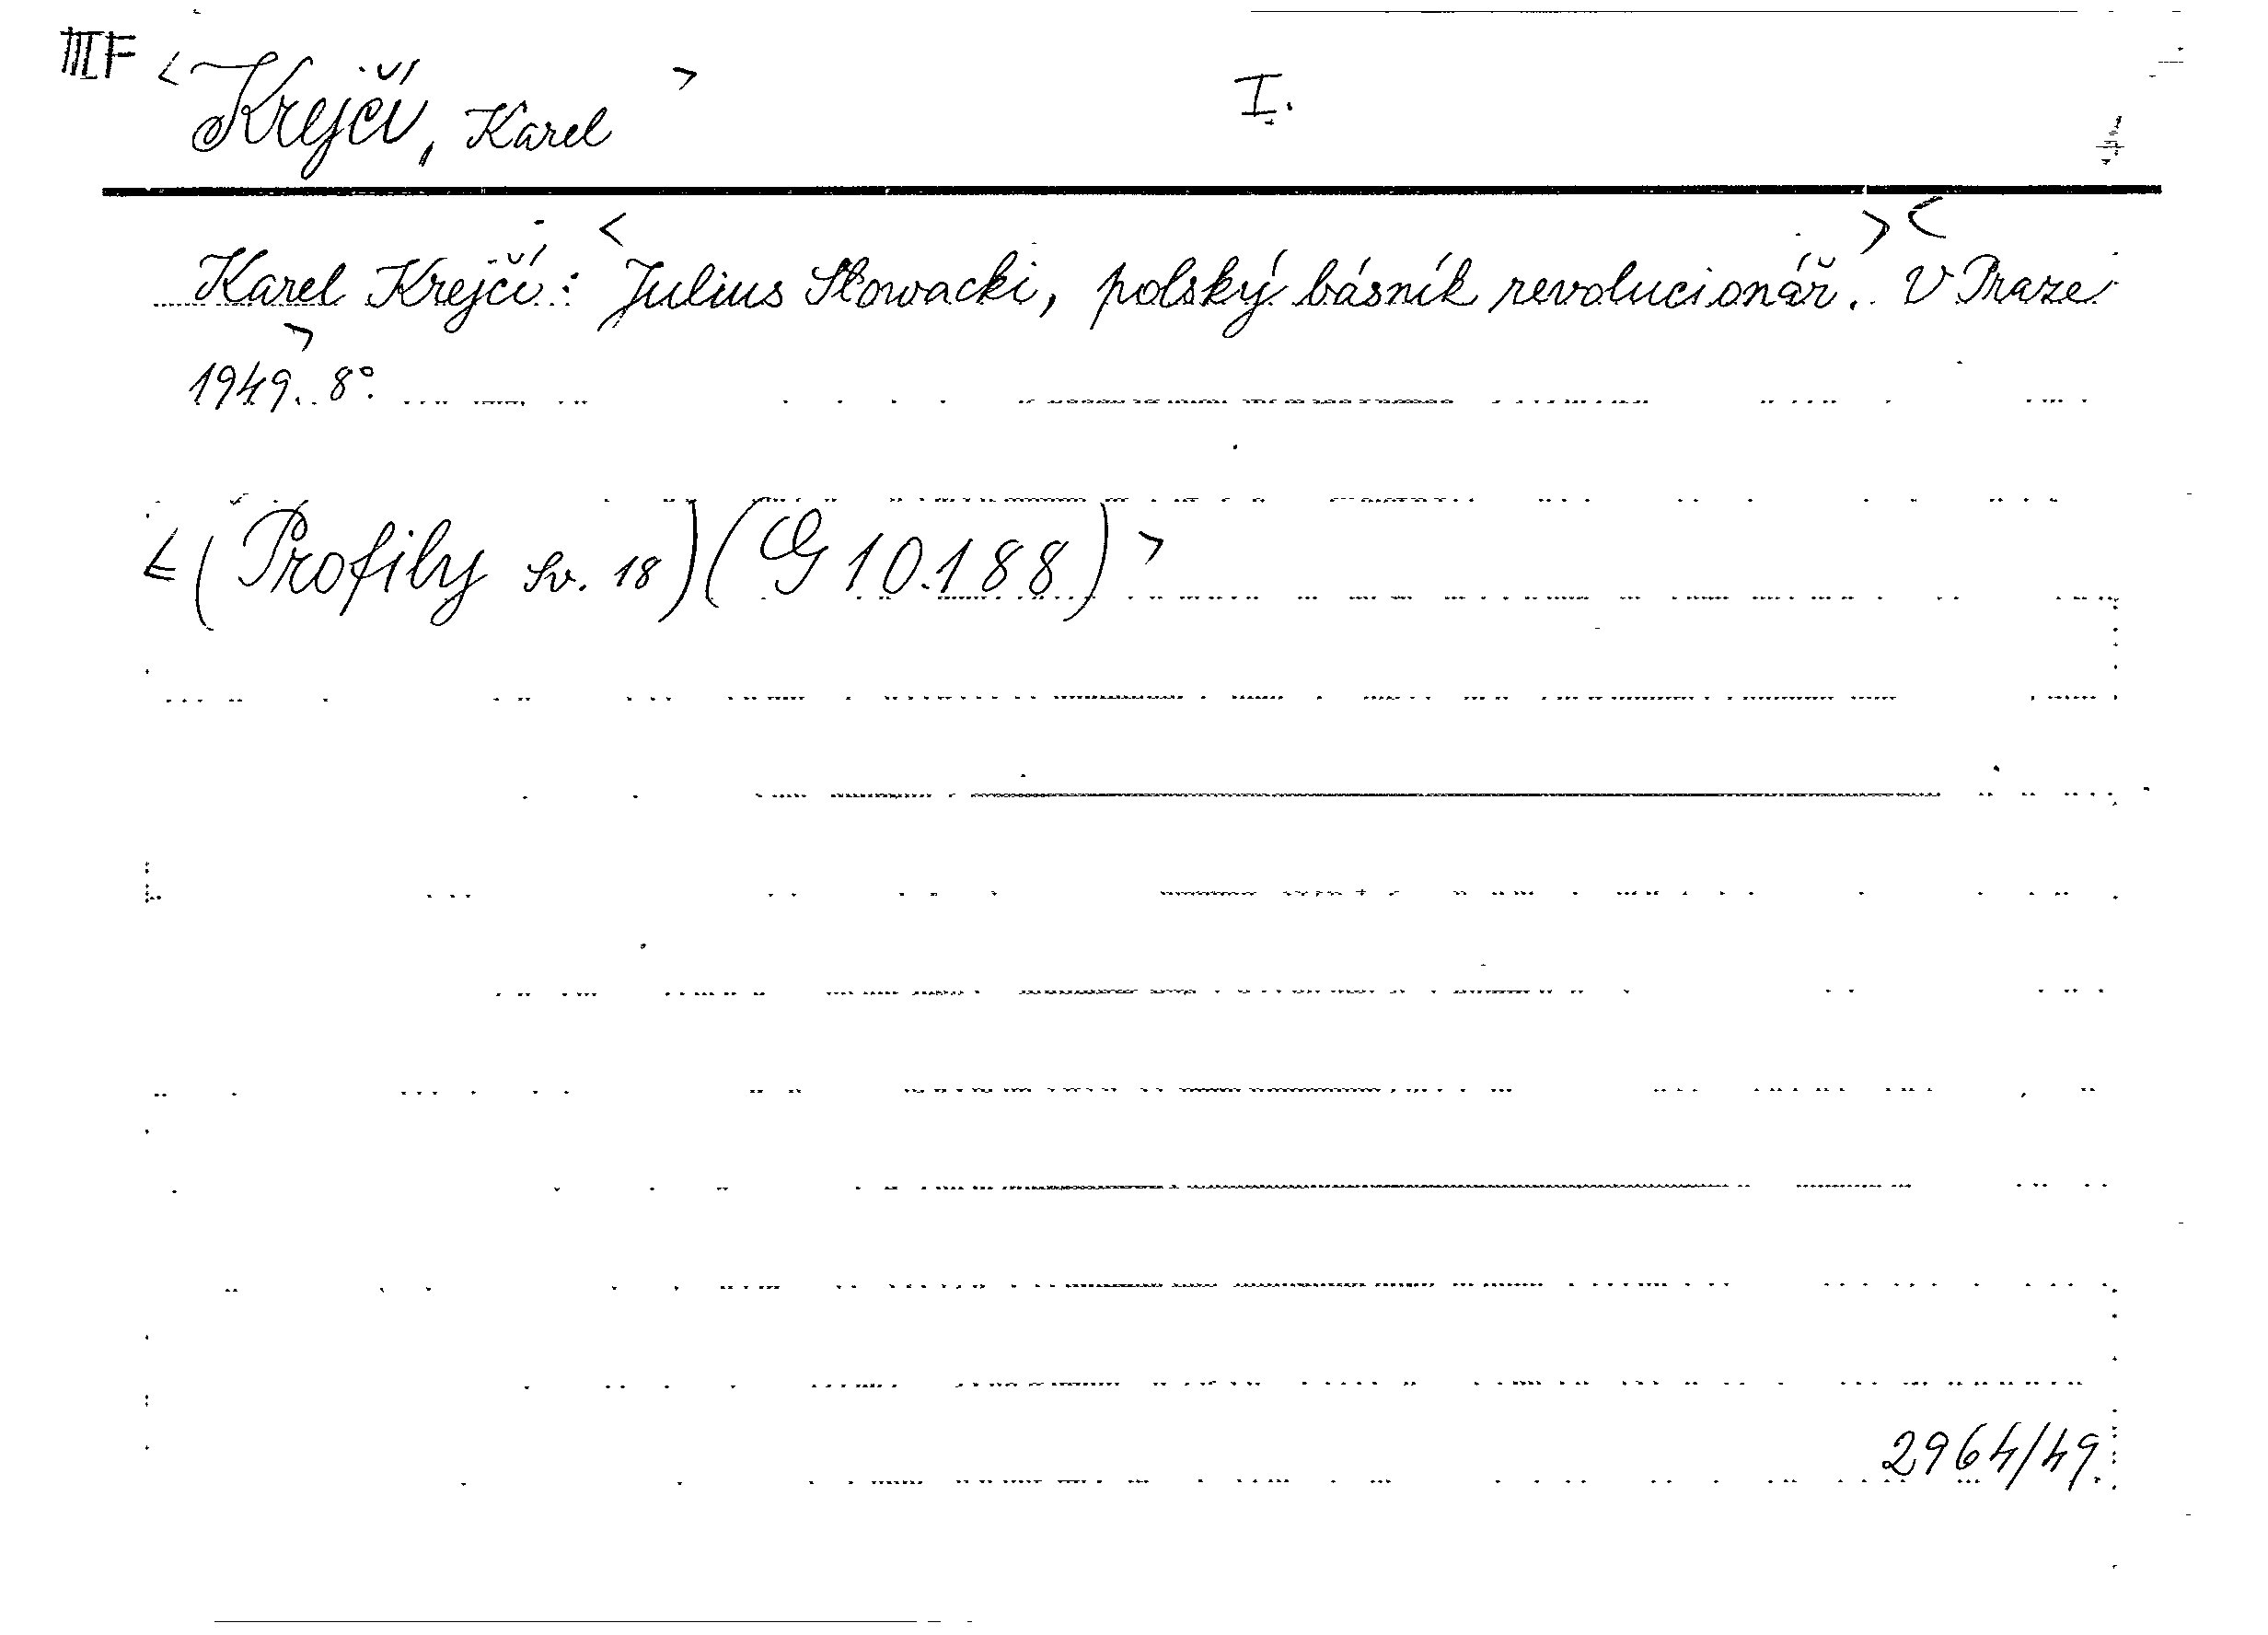 III F < Krejčí, Karel > I.
Karel Krejčí: < Julius Słowacki, polský básník revolucionář. > < V Praze
1949. > 8°.
< (Profily sv. 18) (G 10.188) >
2964/49.